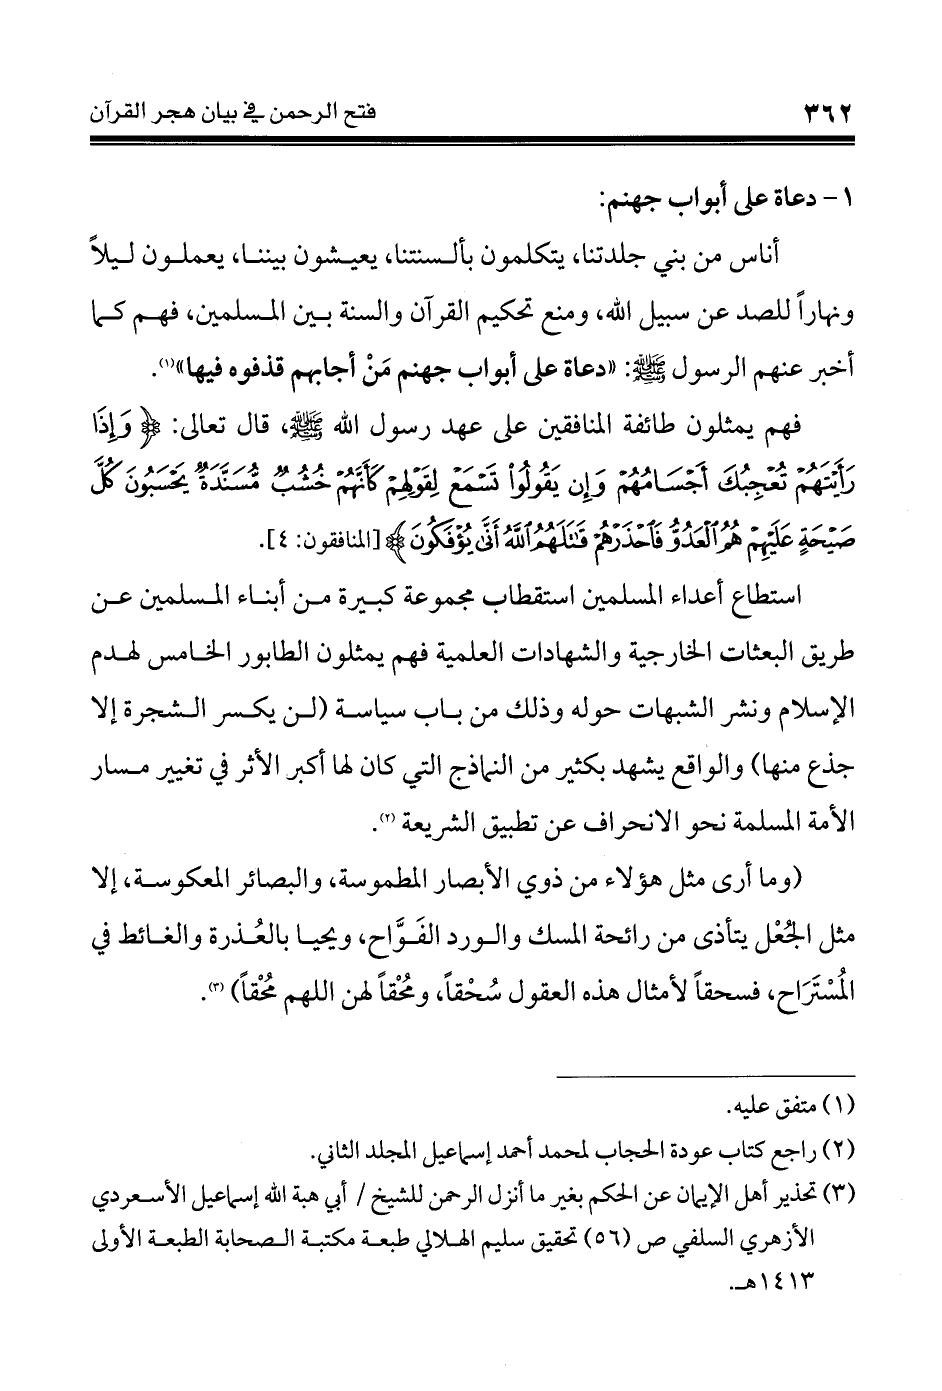 ٣٦٢
فتح الرحمن في بيان هجر القرآن
١- دعاة على أبواب جهنم:
أناس من بني جلدتنا، يتكلمون بألسنتنا، يعيشون بيننا، يعملون ليلاً
ونهاراً للصد عن سبيل الله، ومنع تحكيم القرآن والسنة بين المسلمين، فهم كما
أخبر عنهم الرسول ﷺ: «دعاة على أبواب جهنم مَنْ أجابهم قذفوه فيها»(١).
فهم يمثلون طائفة المنافقين على عهد رسول الله ﷺ، قال تعالى: ﴿ وَإِذَا
رَأَيْتَهُمْ تُعْجِبُكَ أَجْسَامُهُمْ وَإِن يَقُولُوا۟ تَسْمَعْ لِقَوْلِهِمْ كَأَنَّهُمْ خُشُبٌ مُّسَنَّدَةٌ يَحْسَبُونَ كُلَّ
صَيْحَةٍ عَلَيْهِمْ هُمُ ٱلْعَدُوُّ فَٱحْذَرْهُمْ قَـٰتَلَهُمُ ٱللَّهُ أَنَّىٰ يُؤْفَكُونَ ﴾ [المنافقون: ٤].
استطاع أعداء المسلمين استقطاب مجموعة كبيرة من أبناء المسلمين عن
طريق البعثات الخارجية والشهادات العلمية فهم يمثلون الطابور الخامس لهدم
الإسلام ونشر الشبهات حوله وذلك من باب سياسة (لن يكسر الشجرة إلا
جذع منها) والواقع يشهد بكثير من النماذج التي كان لها أكبر الأثر في تغيير مسار
الأمة المسلمة نحو الانحراف عن تطبيق الشريعة (٢).
(وما أرى مثل هؤلاء من ذوي الأبصار المطموسة، والبصائر المعكوسة، إلا
مثل الجُعْل يتأذى من رائحة المسك والورد الفَوَّاح، ويحيا بالعُذرة والغائط في
المُسْتَرَاح، فسحقاً لأمثال هذه العقول سُحْقاً، ومُحْقاً لهن اللهم مُحْقاً) (٣).
(١) متفق عليه.
(٢) راجع كتاب عودة الحجاب لمحمد أحمد إسماعيل المجلد الثاني.
(٣) تحذير أهل الإيمان عن الحكم بغير ما أنزل الرحمن للشيخ / أبي هبة الله إسماعيل الأسعردي
الأزهري السلفي ص (٥٦) تحقيق سليم الهلالي طبعة مكتبة الصحابة الطبعة الأولى
١٤١٣هـ.